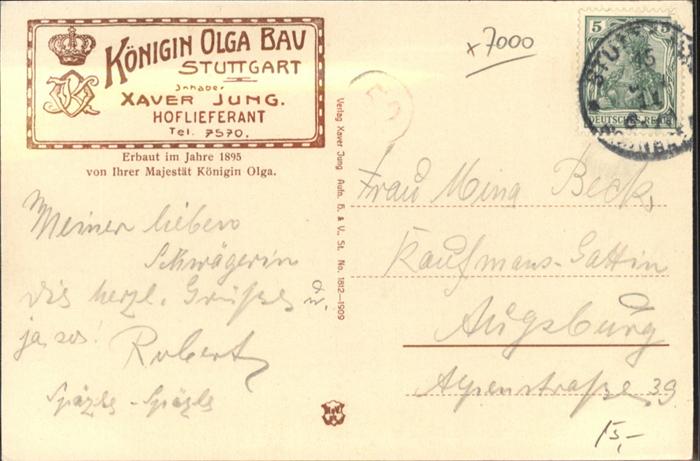 KÖNIGIN OLGA BAU
STUTTGART
Inhaber
XAVER JUNG.
HOFLIEFERANT
Tel. 7570.
Erbaut im Jahre 1895
von Ihrer Majestät Königin Olga.
Meiner lieben
Schwägerin
die herzl. Grüße
Robert
Spätzle - Spätzle
Verlag Xaver Jung Aufn. H. & V., St. No. 1812-1909
x 7000
5 5
DEUTSCHES REICH
STUTTGART
Frau Mina Beck,
Kaufmans-Gattin
Augsburg
Alpenstraße 39
15,-